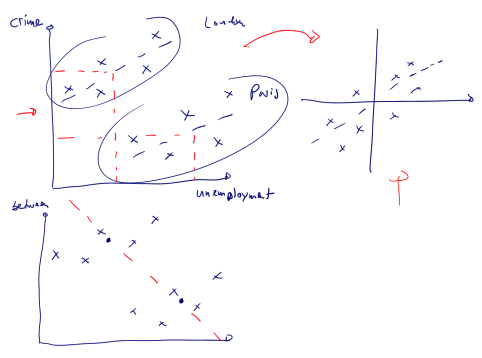 Crime
London
Paris
unemployment
between